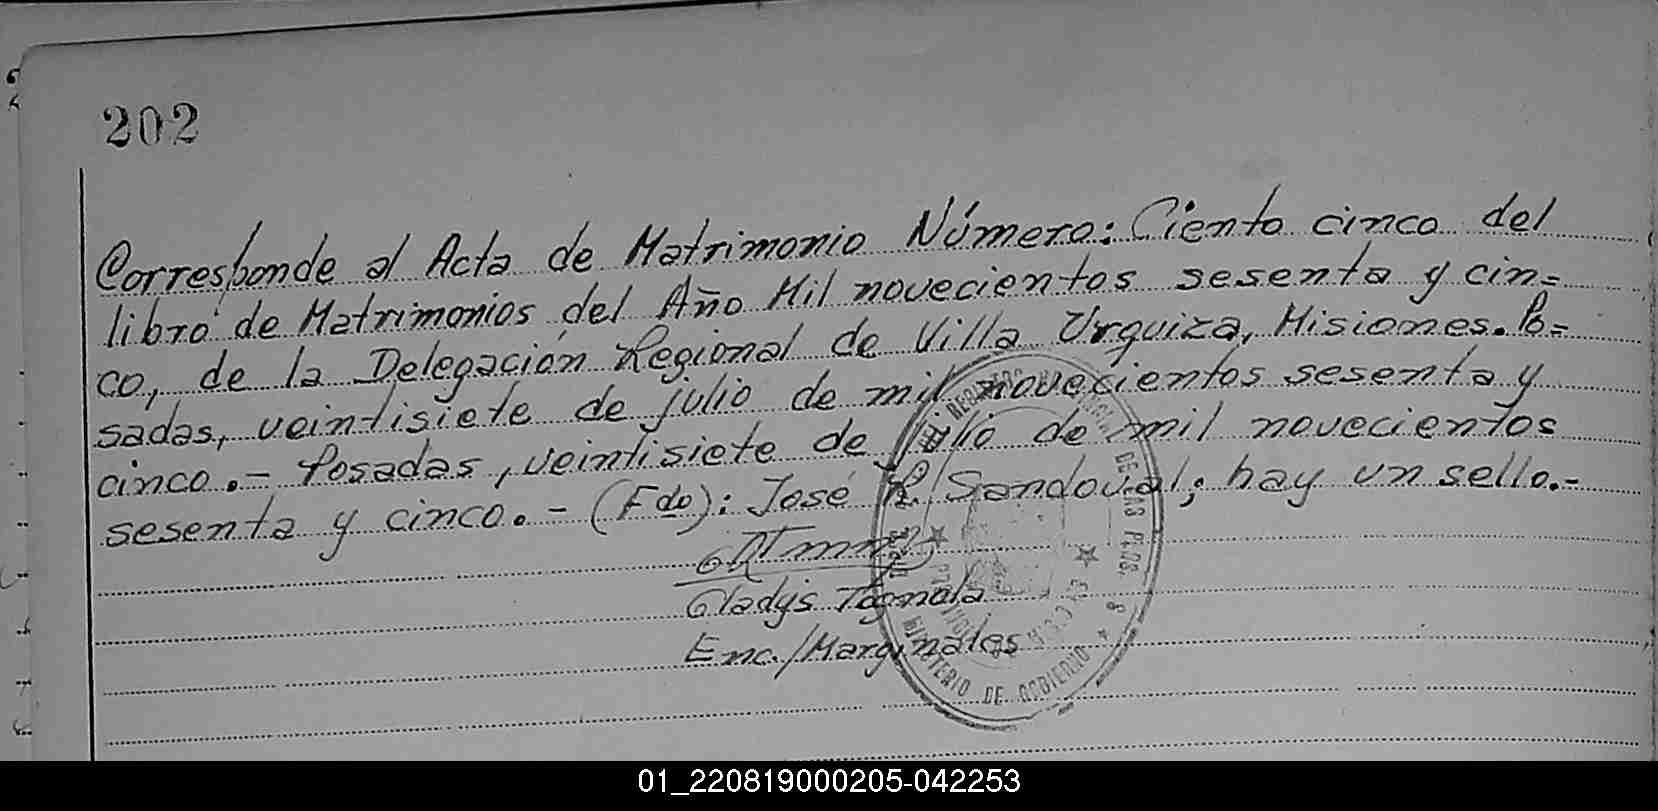 202
Corresponde al Acta de Matrimonio Número: Ciento cinco del
libro de Matrimonios del Año Mil novecientos sesenta y cin=
co, de la Delegación Regional de Villa Urquiza, Misiones. Po=
sadas, veintisiete de julio de mil novecientos sesenta y
cinco.- Posadas, veintisiete de julio de mil novecientos
sesenta y cinco.- (Fdo): José R. Sandoval; hay un sello.-
Gladys Tognola
Enc./Marginales
MINISTERIO DE GOBIERNO
DE LAS PERS.
01_220819000205-042253